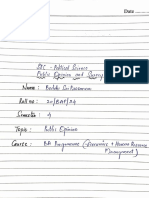 Date
SEC - Political Science
Public Opinion and Survey
Name :
Roll no : 20/BAP/24
Semester : 4
Topic : Public Opinion
Course : BA Programme (Economics + Human Resource
Management)